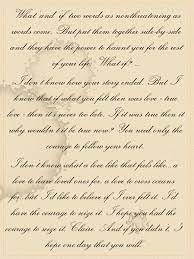 What and if two words as nonthreatening as
words come. But put them together side-by-side
and they have the power to haunt you for the rest
of your life. What if?...
I don't know how your story ended. But I
know that if what you felt then was love - true
love - then it's never too late. If it was true then it
why wouldn't it be true now? You need only the
courage to follow your heart.
I don't know what a love like that feels like... a
love to leave loved ones for, a love to cross oceans
for, but I'd like to believe if I ever felt it. I'd
have the courage to seize it. I hope you had the
courage to seize it, Claire. And if you didn't, I
hope one day that you will.